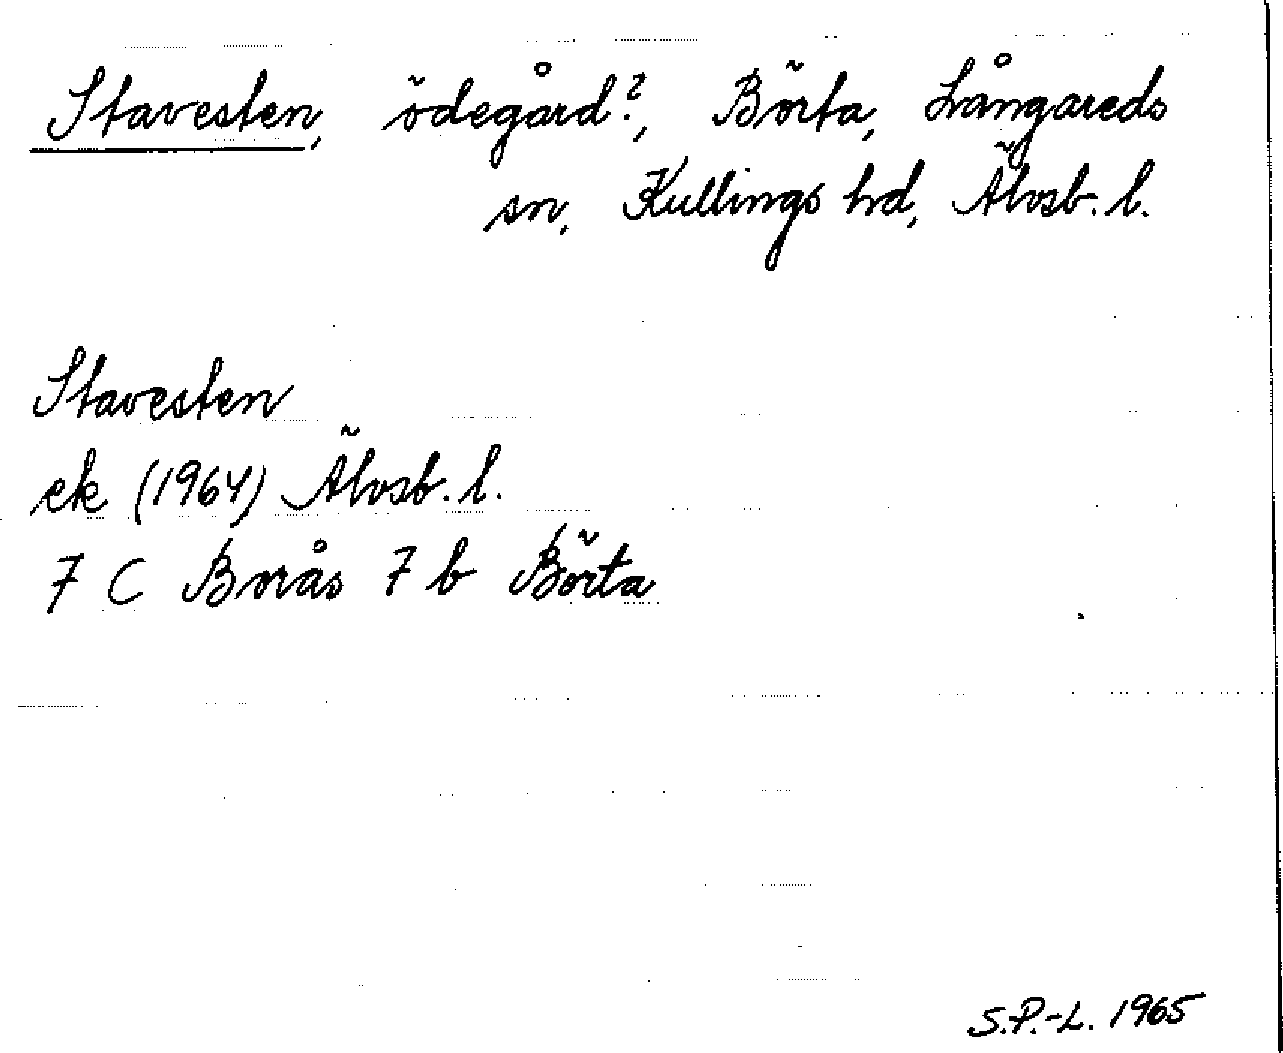 Stavesten, ödegård?, Börta, Långareds
sn, Kullings hd, Älvsb. l.
Stavesten
ek (1964) Älvsb. l.
7 C Borås 7 b Börta
S.P.-L. 1965